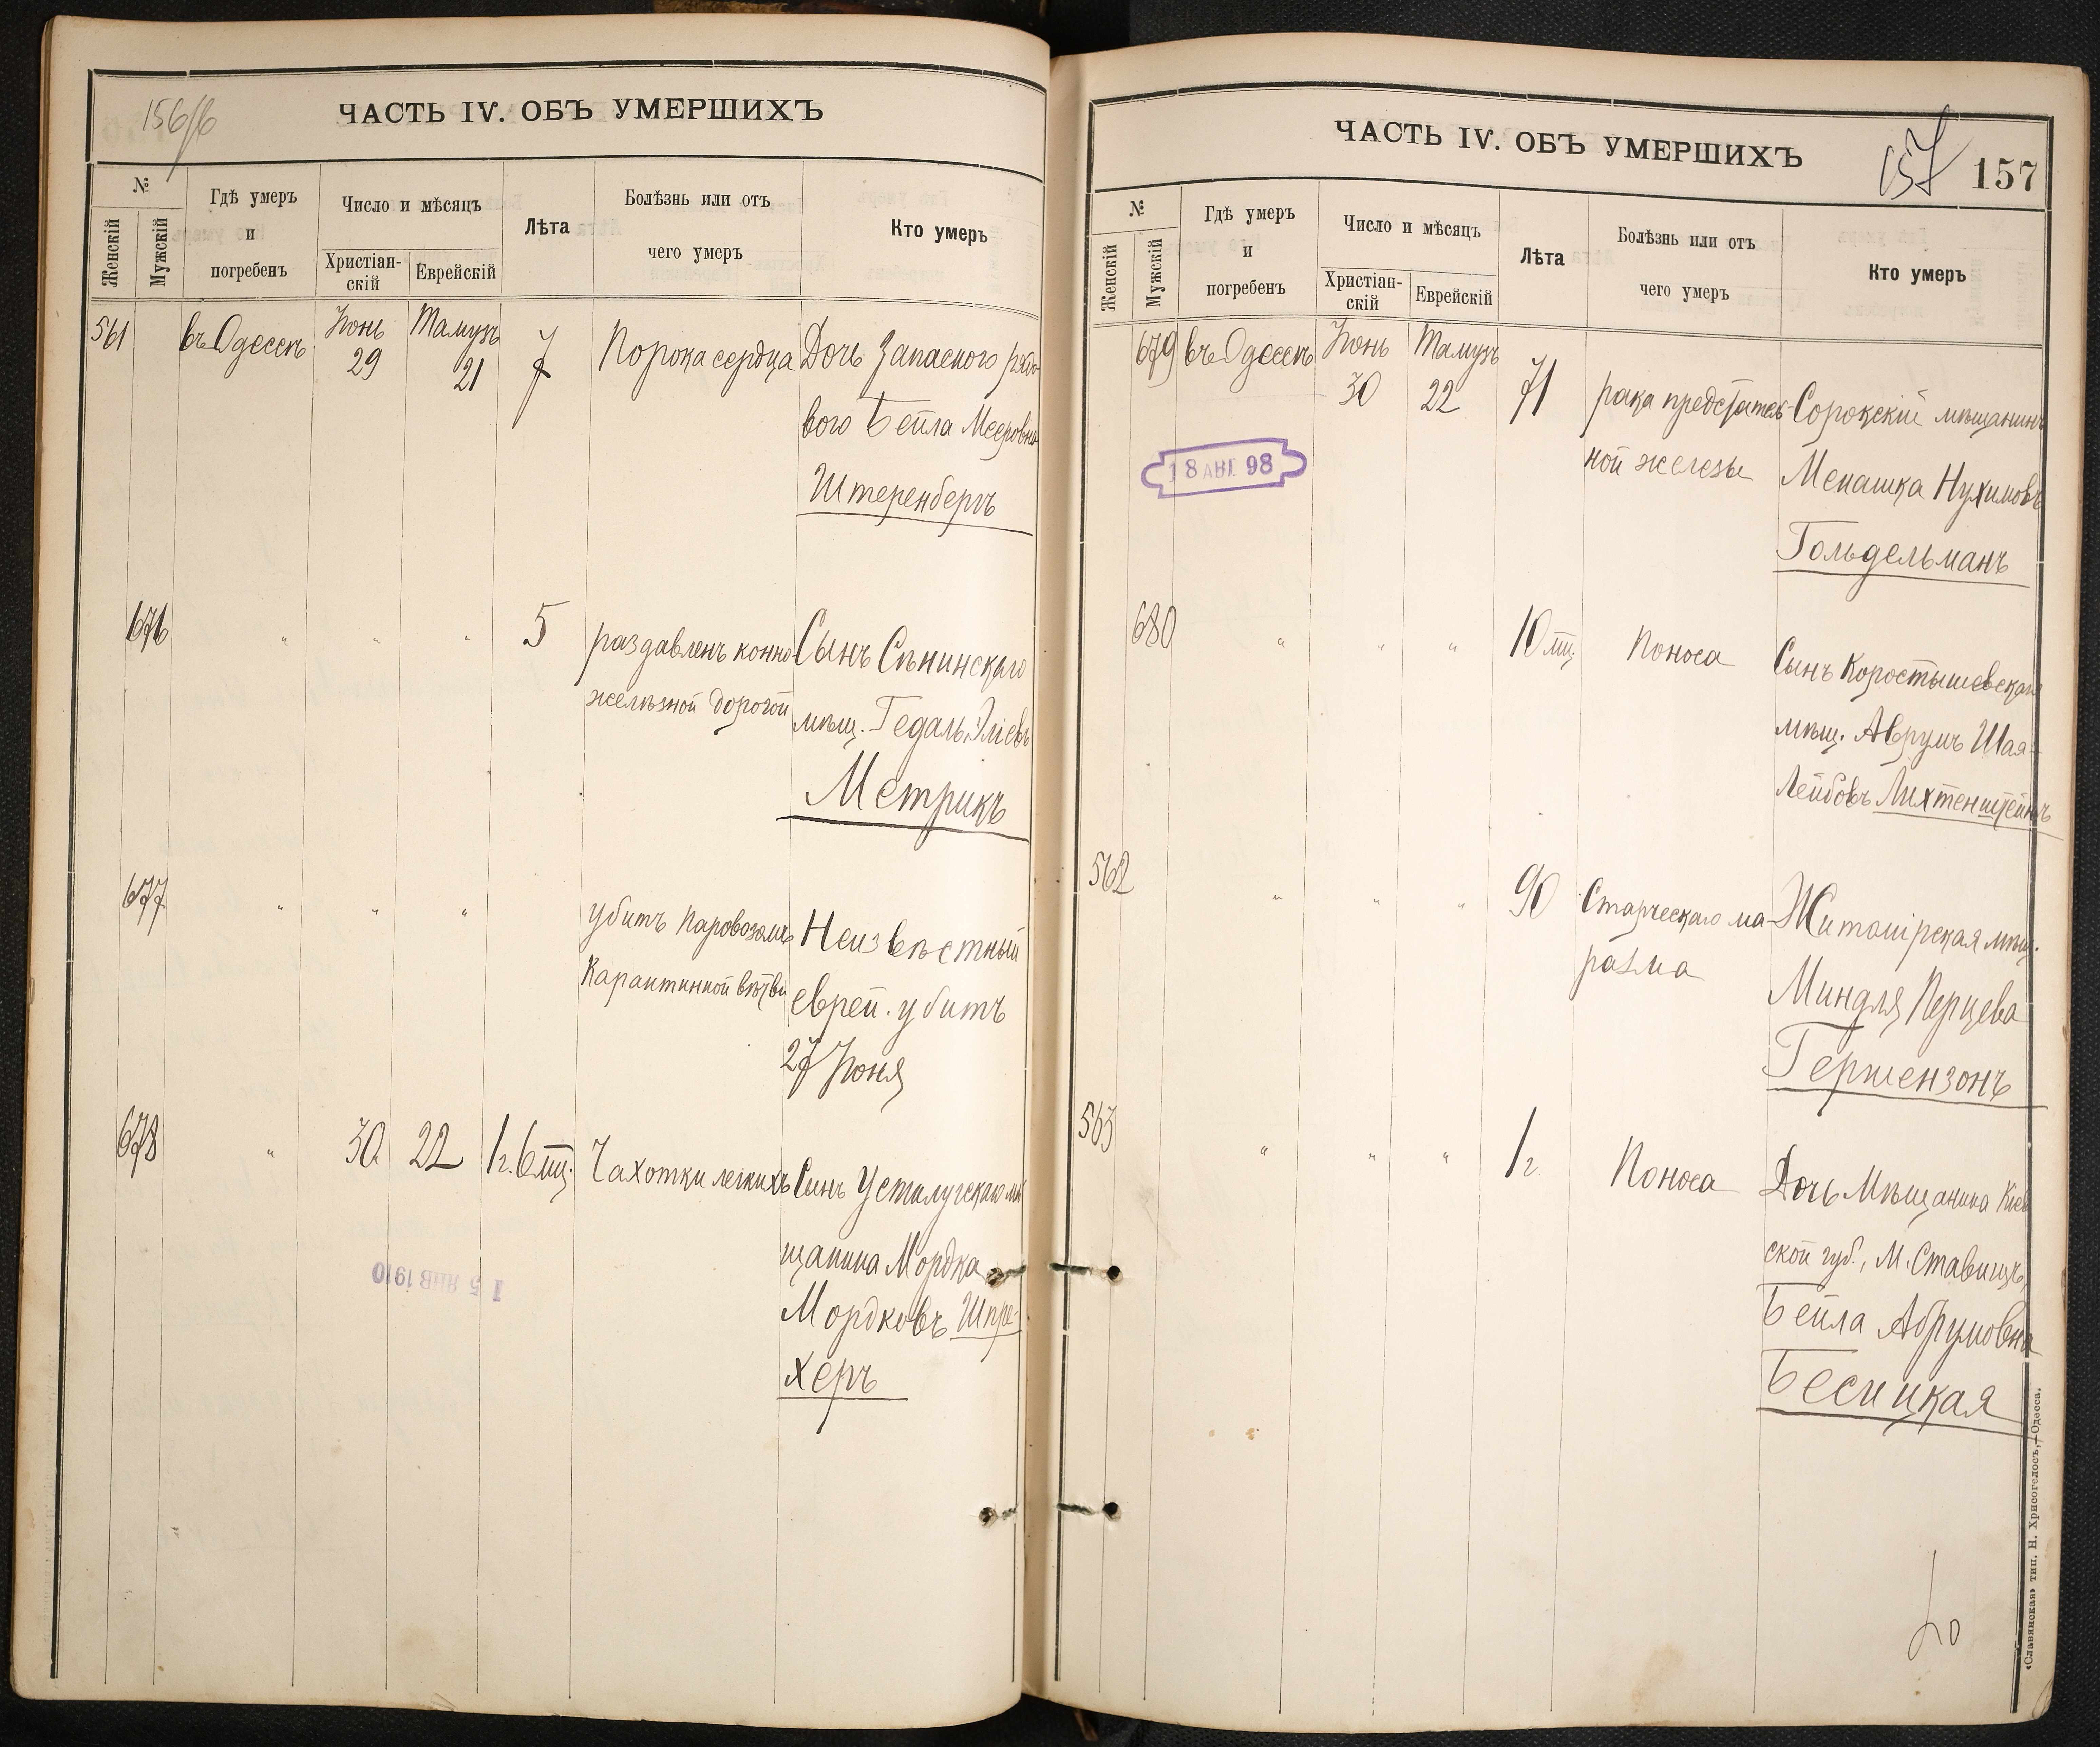 156/б
ЧАСТЬ IV. ОБЪ УМЕРШИХЪ
№
Женскій
Мужскій
Гдѣ умеръ
и
погребенъ
Число и мѣсяцъ
Христіан-
скій
Еврейскій
Лѣта
Болѣзнь или отъ
чего умеръ
Кто умеръ
561
въ Одессѣ
Іюнь
29
Тамузъ
21
7
Порока сердца
Дочь запасного рядо-
вого Бейла Мееровна
Штеренбергъ
676
" " "
5
раздавленъ конно-
желѣзной дорогой
Сынъ Сѣнинскаго
мѣщ. Гедаль Эліевъ
Метрикъ
677
" " "
убитъ паровозомъ
Карантинной вѣтви
Неизвѣстный
еврей. убитъ
27 Іюня
678
"
30
22
1 г. 6 мц.
Чахотки легкихъ
Сынъ Устилугскаго мѣ
щанина Мордка
Мордковъ Шпре-
херъ
15 ЯНВ 1910
ЧАСТЬ IV. ОБЪ УМЕРШИХЪ
157
157
№
Женскій
Мужскій
Гдѣ умеръ
и
погребенъ
Число и мѣсяцъ
Христіан-
скій
Еврейскій
Лѣта
Болѣзнь или отъ
чего умеръ
Кто умеръ
679
въ Одессѣ
Іюнь
30
Тамузъ
22
71
рака предстатель-
ной железы
Сорокскій мѣщанинъ
Менашка Нухимовъ
Гольдельманъ
18 АВГ. 98
680
" " "
10 мц.
Поноса
Сынъ Коростышевскаго
мѣщ. Аврумъ Шая-
Лейбовъ Лихтенштейнъ
562
" " "
90
Старческаго ма-
разма
Житомірская мѣщ.
Миндля Перцева
Гершензонъ
563
" " "
1 г.
Поноса
Дочь Мѣщанина Кіев
ской губ., М. Ставищъ,
Бейла Абрумовна
Бесицкая
«Славянская» тип. Н. Хрисогелосъ,—Одесса.